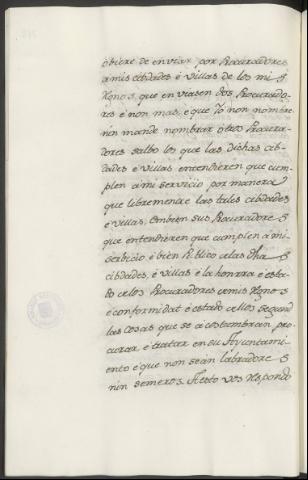 obiere de enviar por Procuradores
a mis cibdades é villas de los mis
Rgnos, que enviasen dos Procurado-
res é non mas, e que Yo non nombre
nin mande nombrar otros Procura-
dores salbo los que las dichas cib-
dades é villas entendieren que cum-
plen a mi servicio por manera
que libremente las tales cibdades
é villas, embien sus Procuradores
que entendieren que cumplen á mi
serbicio é bien Publico de las dhas
cibdades, é villas é la honrra é esta-
do de los Procuradores de mis Rgnos
é conformidat é estado de llos segund
las cosas que se acostumbran pro-
curar é tratar en su Ayuntami-
ento é que non sean labradores
nin sesmeros. A esto vos Respondo